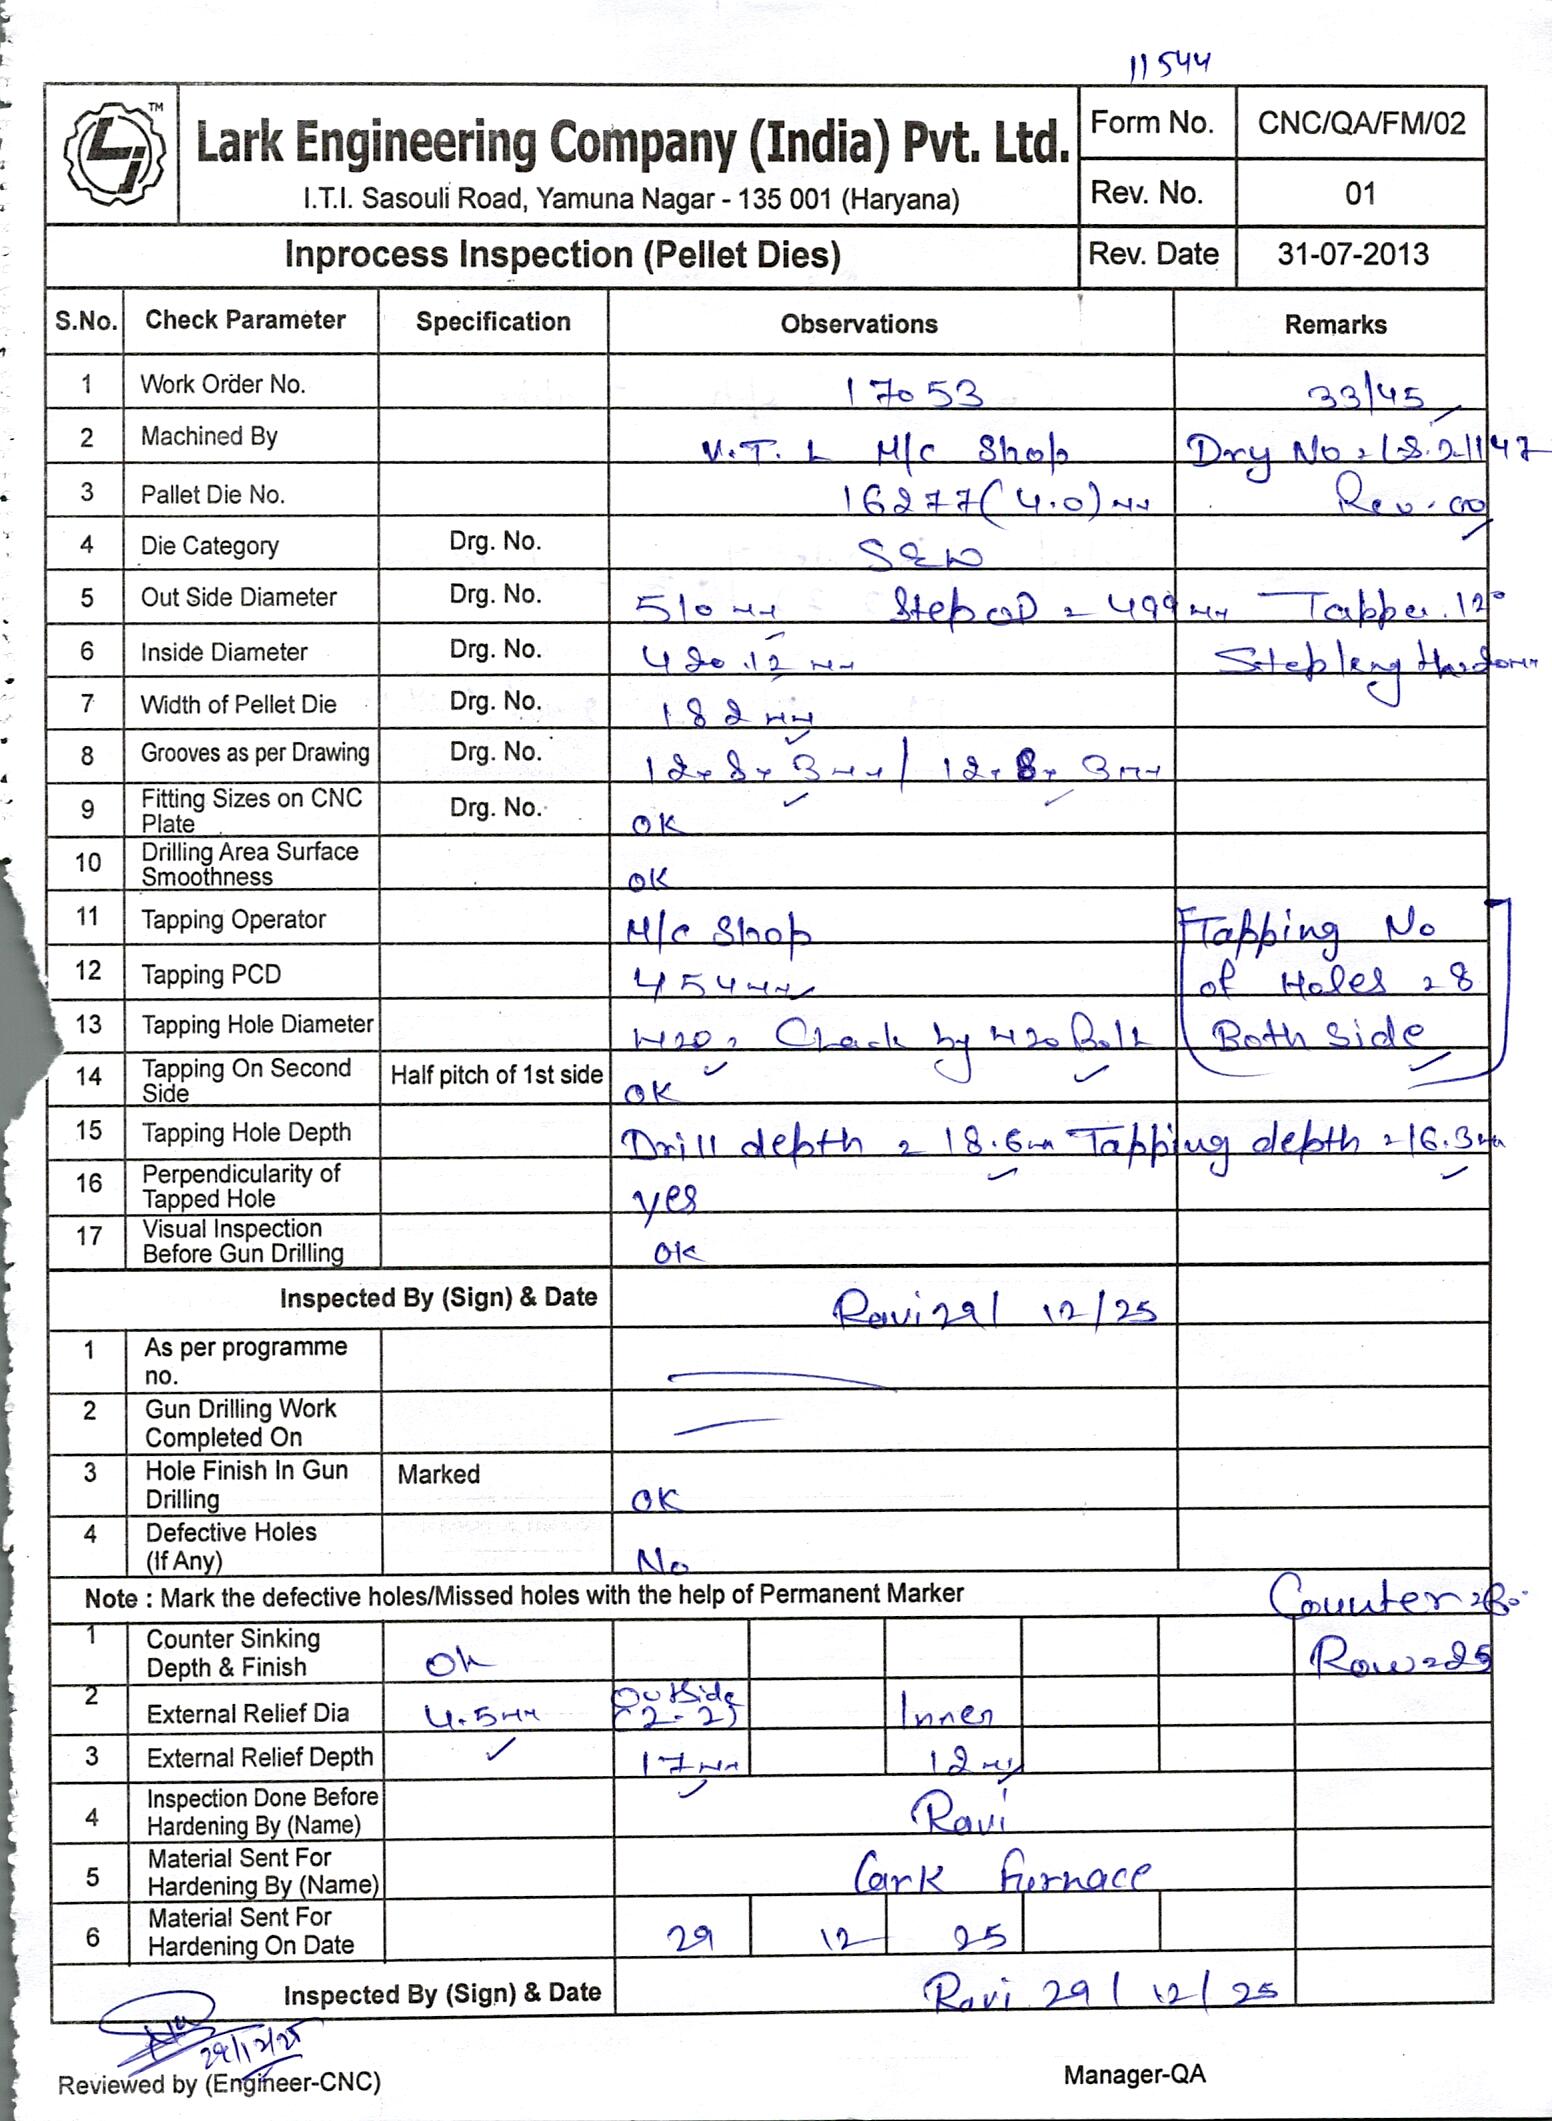 11544
TM
Lark Engineering Company (India) Pvt. Ltd.
I.T.I. Sasouli Road, Yamuna Nagar - 135 001 (Haryana)
Form No. CNC/QA/FM/02
Rev. No. 01
Inprocess Inspection (Pellet Dies) Rev. Date 31-07-2013
S.No. Check Parameter Specification Observations Remarks
1 Work Order No. 17053 33/45
2 Machined By V.T.L M/c Shop Drg No
3 Pallet Die No. 16277 (4.0) mm Rev. 00
4 Die Category Drg. No.
5 Out Side Diameter Drg. No. 510 mm Step OD = 499 mm Tapper 12°
6 Inside Diameter Drg. No. 420.12 mm
7 Width of Pellet Die Drg. No. 182 mm
8 Grooves as per Drawing Drg. No. 12x8x3mm / 12x8x3mm
9 Fitting Sizes on CNC Plate Drg. No. OK
10 Drilling Area Surface Smoothness OK
11 Tapping Operator M/c Shop Tapping No
12 Tapping PCD 454mm of Holes = 8
13 Tapping Hole Diameter M20 = Check by M20 Bolt Both Side
14 Tapping On Second Side Half pitch of 1st side OK
15 Tapping Hole Depth Drill depth = 18.6mm Tapping depth = 16.3mm
16 Perpendicularity of Tapped Hole yes
17 Visual Inspection Before Gun Drilling OK
Inspected By (Sign) & Date Ravi 29/12/25
1 As per programme no.
2 Gun Drilling Work Completed On
3 Hole Finish In Gun Drilling Marked OK
4 Defective Holes (If Any) No
Note : Mark the defective holes/Missed holes with the help of Permanent Marker Counter
1 Counter Sinking Depth & Finish Ok Row = 25
2 External Relief Dia 4.5mm Outside (2-2) Inner
3 External Relief Depth 17mm 12mm
4 Inspection Done Before Hardening By (Name) Ravi
5 Material Sent For Hardening By (Name) Lark Furnace
6 Material Sent For Hardening On Date 29 12 25
Inspected By (Sign) & Date Ravi 29/12/25
29/12/25
Reviewed by (Engineer-CNC) Manager-QA